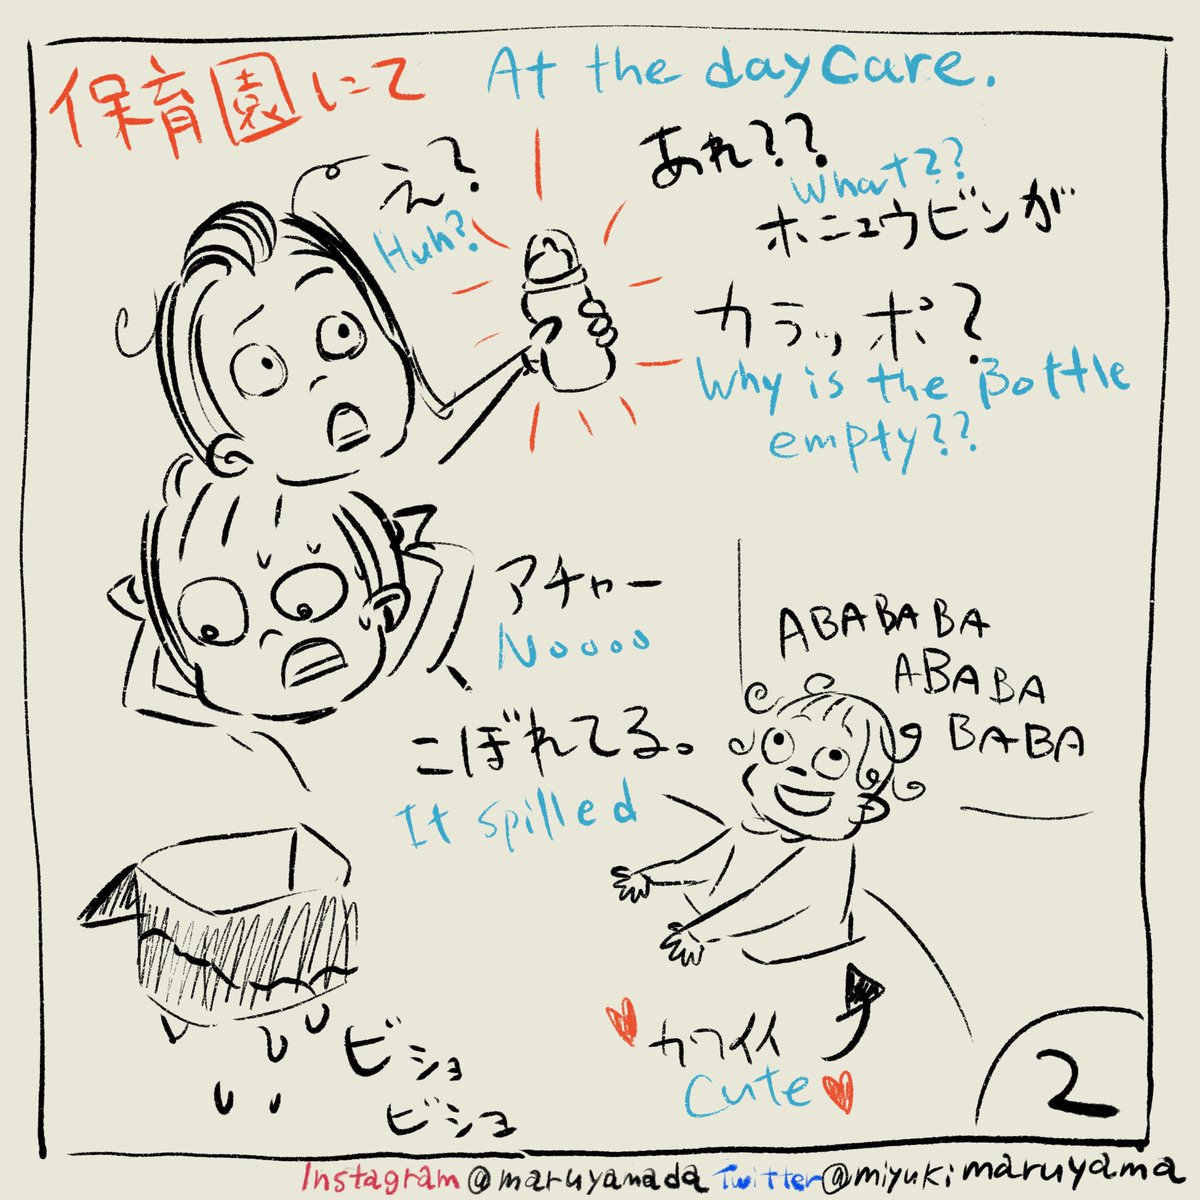 保育園にて At the daycare.
え?
Huh?
あれ??
What??
ホニュウビンが
カラッポ?
Why is the Bottle
empty??
アチャー
Noooo
こぼれてる。
It spilled
ABABABA
ABABA
BABA
ビショ
ビショ
カワイイ
Cute
2
Instagram@maruyamada Twitter@miyukimaruyama